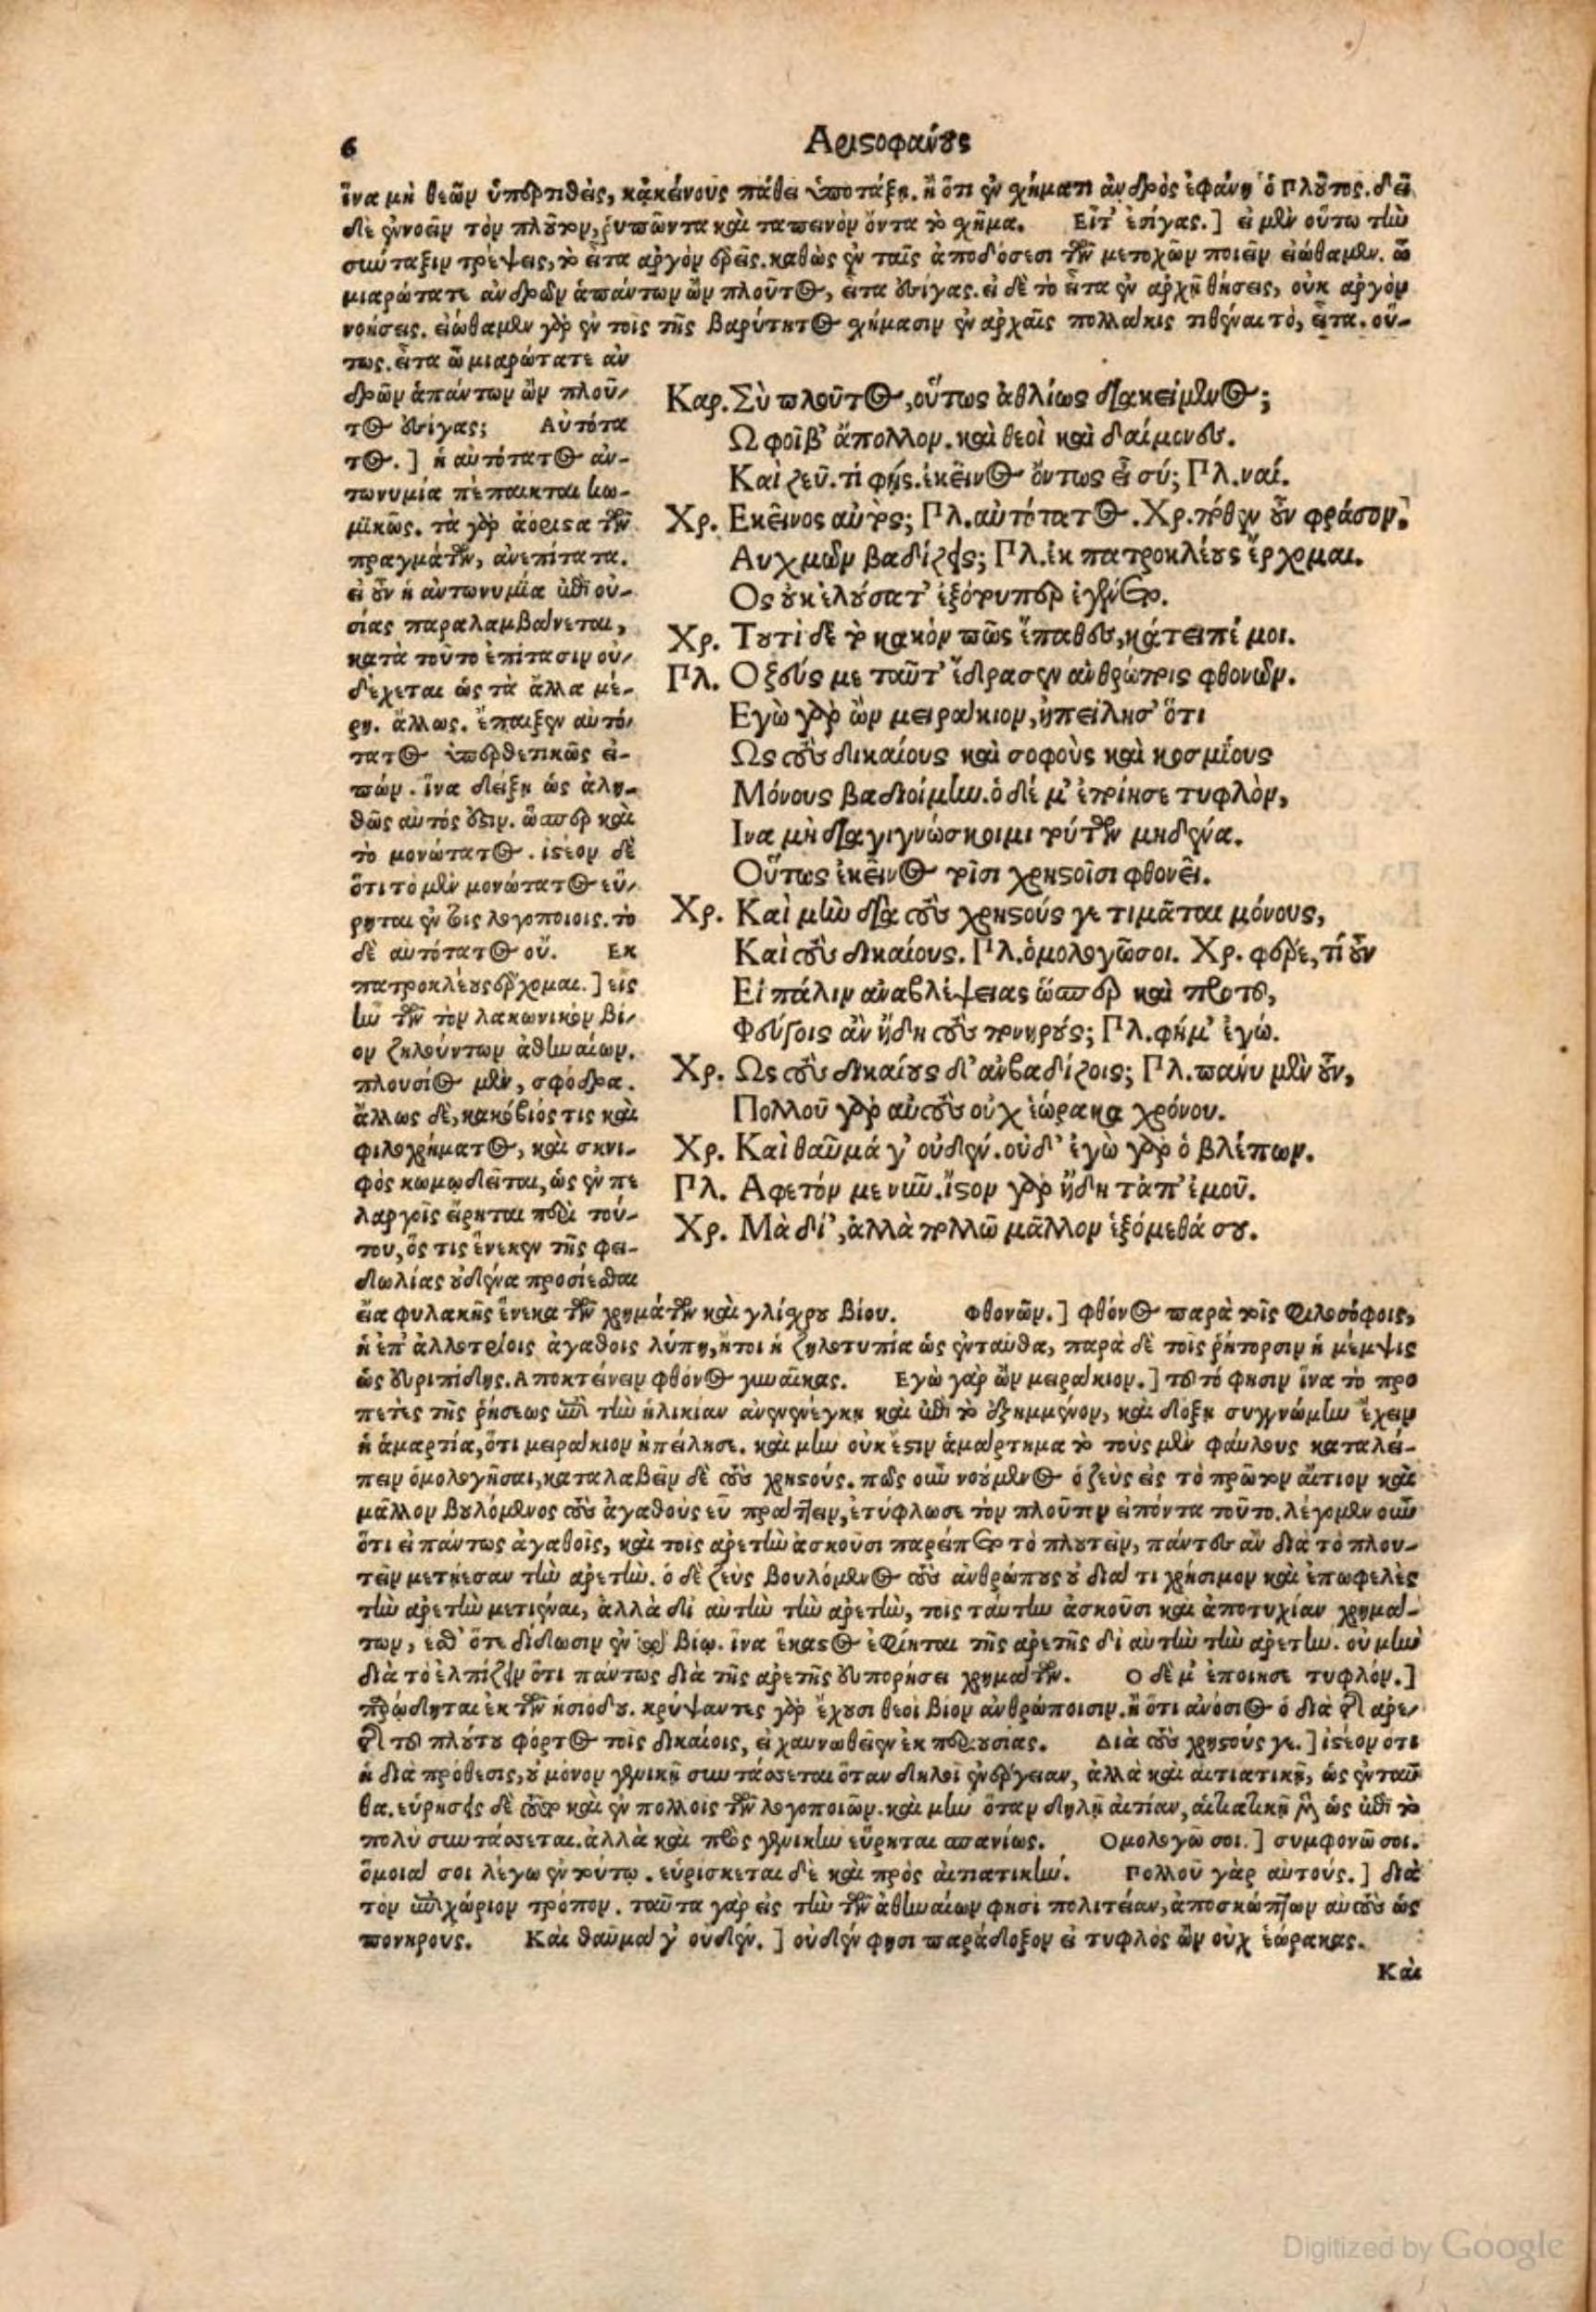 6
Αριστοφάνους
ἵνα μὴ θεῶν ὑπερτιθεὶς, κἀκείνους πάθει ὑποτάξῃ. ἢ ὅτι ἐν σχήματι ἀνδρὸς ἐφάνη ὁ Πλοῦτος. δεῖ
δὲ ἐννοεῖν τὸν πλοῦτον, ῥυπῶντα καὶ ταπεινὸν ὄντα τὸ σχῆμα. Εἶτ' ἐσίγας.] εἰ μὲν οὕτω τὴν
σύνταξιν τρέψεις, τὸ εἶτα ἀργὸν εὑρεῖς. καθὼς ἐν ταῖς ἀποδόσεσι τῶν μετοχῶν ποιεῖν εἰώθαμεν. ὦ
μιαρώτατε ἀνδρῶν ἁπάντων ὢν πλοῦτος, εἶτα ἐσίγας. εἰ δὲ τὸ εἶτα ἐν ἀρχῇ θήσεις, οὐκ ἀργὸν
νοήσεις. εἰώθαμεν γὰρ ἐν τοῖς τῆς βαρύτητος σχήμασιν ἐν ἀρχαῖς πολλάκις τιθέναι τὸ, εἶτα. οὕ-
τως. εἶτα ὦ μιαρώτατε ἀν
δρῶν ἁπάντων ὢν πλοῦ-
τος ἐσίγας; Αὐτότα
τος.] ἡ αὐτότατος ἀν-
τωνυμία πέπαικται κω-
μικῶς. τὰ γὰρ ἀόριστα τῶν
πραγμάτων, ἀνεπίτατα.
εἰ οὖν ἡ ἀντωνυμία ἐπὶ οὐ-
σίας παραλαμβάνεται,
κατὰ τοῦτο ἐπίτασιν οὐ
δέχεται ὡς τὰ ἄλλα μέ-
ρη. ἄλλως. ἔπαιξεν αὐτό-
τατος ὑπερθετικῶς εἰ-
πών. ἵνα δείξῃ ὡς ἀλη-
θῶς αὐτός ἐστιν. ὥσπερ καὶ
τὸ μονώτατος. ἰστέον δὲ
ὅτι τὸ μὲν μονώτατος εὕ-
ρηται ἐν τοῖς λογοποιοις. τὸ
δὲ αὐτότατος οὔ. Εκ
πατροκλέους ἔρχομαι.] εἷς
ἦν τῶν τὸν λακωνικὸν βί-
ον ζηλούντων ἀθηναίων.
πλουσίος μὲν, σφόδρα.
ἄλλως δὲ, κακόβιός τις καὶ
φιλοχρήματος, καὶ σκνι-
φὸς κωμῳδεῖται, ὡς ἐν πε
λαργοῖς εἴρηται περὶ τού-
του, ὅς τις ἕνεκεν τῆς φει-
δωλίας οὐδένα προσίεσθαι
Καρ. Σὺ πλοῦτος, οὕτως ἀθλίως διακείμενος;
Ω φοῖβ' ἄπολλον. καὶ θεοὶ καὶ δαίμονες.
Καὶ ζεῦ. τί φής. ἐκεῖνος ὄντως εἶ σύ; Πλ. ναί.
Χρ. Εκεῖνος αὐτός; Πλ. αὐτότατος. Χρ. πόθεν οὖν φράσον,
Αυχμῶν βαδίζεις; Πλ. ἐκ πατροκλέους ἔρχομαι.
Ος οὐκ ἐλούσατ' ἐξότουπερ ἐγένετο.
Χρ. Τουτὶ δὲ τὸ κακὸν πῶς ἔπαθες, κάτειπέ μοι.
Πλ. Ο ζεύς με ταῦτ' ἔδρασεν ἀνθρώποις φθονῶν.
Εγὼ γὰρ ὢν μειράκιον, ἠπείλησ' ὅτι
Ως τοὺς δικαίους καὶ σοφοὺς καὶ κοσμίους
Μόνους βαδιοίμην. ὁ δέ μ' ἐποίησε τυφλὸν,
Ινα μὴ διαγιγνώσκοιμι τούτων μηδένα.
Οὕτως ἐκεῖνος τοῖσι χρηστοῖσι φθονεῖ.
Χρ. Καὶ μὴν διὰ τοὺς χρηστούς γε τιμᾶται μόνους,
Καὶ τοὺς δικαίους. Πλ. ὁμολογῶ σοι. Χρ. φέρε, τί οὖν
Εἰ πάλιν ἀναβλέψειας ὥσπερ καὶ προτοῦ,
Φεύγοις ἂν ἤδη τοὺς πονηρούς; Πλ. φήμ' ἐγώ.
Χρ. Ως τοὺς δικαίους δ' ἂν βαδίζοις; Πλ. πάνυ μὲν οὖν,
Πολλοῦ γὰρ αὐτοὺς οὐχ ἑώρακα χρόνου.
Χρ. Καὶ θαῦμά γ' οὐδέν. οὐδ' ἐγὼ γὰρ ὁ βλέπων.
Πλ. Αφετόν με νῦν. ἴστον γὰρ ἤδη τἀπ' ἐμοῦ.
Χρ. Μὰ δί', ἀλλὰ πολλῷ μᾶλλον ἑξόμεθά σου.
εἴα φυλακῆς ἕνεκα τῶν χρημάτων καὶ γλίσχρου βίου. Φθονῶν.] φθόνος παρὰ τοῖς φιλοσόφοις,
ἡ ἐπ' ἀλλοτρίοις ἀγαθοις λύπη, ἤτοι ἡ ζηλοτυπία ὡς ἐνταῦθα, παρὰ δὲ τοῖς ῥήτορσιν ἡ μέμψις
ὡς εὐριπίδης. Αποκτείνειν φθόνος γυναῖκας. Εγὼ γὰρ ὢν μειράκιον.] τοῦτό φησιν ἵνα τὸ προ
πετὲς τῆς ῥήσεως ἐπὶ τὴν ἡλικίαν ἀνενέγκῃ καὶ ἐπὶ τὸ ἐζημμένον, καὶ δόξῃ συγγνώμην ἔχειν
ἡ ἁμαρτία, ὅτι μειράκιον ἠπείλησε. καὶ μὴν οὐκ ἔστιν ἁμάρτημα τὸ τοὺς μὲν φαύλους καταλεί-
πειν ὁμολογῆσαι, καταλαβεῖν δὲ τοὺς χρηστούς. πῶς οὖν νούμενος ὁ ζεὺς εἰς τὸ πρῶτον αἴτιον καὶ
μᾶλλον βουλόμενος τοὺς ἀγαθοὺς εὖ πράττειν, ἐτύφλωσε τὸν πλοῦτον εἰπόντα τοῦτο. λέγομεν οὖν
ὅτι εἰ πάντως ἀγαθοῖς, καὶ τοῖς ἀρετὴν ἀσκοῦσι παρείπετο τὸ πλουτεῖν, πάντες ἂν διὰ τὸ πλου-
τεῖν μετῄεσαν τὴν ἀρετὴν. ὁ δὲ ζεὺς βουλόμενος τοὺς ἀνθρώπους οὐ διά τι χρήσιμον καὶ ἐπωφελὲς
τὴν ἀρετὴν μετιέναι, ἀλλὰ δι αὐτὴν τὴν ἀρετὴν, τοῖς ταύτην ἀσκοῦσι καὶ ἀποτυχίαν χρημά-
των, ἔσθ' ὅτε δίδωσιν ἐν τῷ βίῳ. ἵνα ἕκαστος ἐφίηται τῆς ἀρετῆς δι αὐτὴν τὴν ἀρετὴν. οὐ μὴν
διὰ τὸ ἐλπίζειν ὅτι πάντως διὰ τῆς ἀρετῆς εὐπορήσει χρημάτων. Ο δέ μ' ἐποίησε τυφλόν.]
παρῴδηται ἐκ τῶν ἡσιόδου. κρύψαντες γὰρ ἔχουσι θεοὶ βίον ἀνθρώποισιν. ἢ ὅτι ἀνόσιος ὁ διὰ
τοῦ πλούτου φόρτος τοῖς δικαίοις, εἰ χαυνωθεῖεν ἐκ περιουσίας. Διὰ τοὺς χρηστούς γε.] ἰστέον ὅτι
ἡ διὰ πρόθεσις, οὐ μόνον γενικῇ συντάσσεται ὅταν δηλοῖ ἐνέργειαν, ἀλλὰ καὶ αἰτιατικῇ, ὡς ἐνταῦ
θα. εὑρήσεις δὲ τοῦτο καὶ ἐν πολλοῖς τῶν λογοποιῶν. καὶ μὴν ὅταν δηλῇ αἰτίαν, αἰτιατικῇ ὡς ἐπὶ τὸ
πολὺ συντάσσεται. ἀλλὰ καὶ πρὸς γενικὴν εὕρηται σπανίως. Ομολογῶ σοι.] συμφονῶ σοι.
ὅμοιά σοι λέγω ἐν τούτῳ. εὑρίσκεται δὲ καὶ πρὸς αἰτιατικήν. Πολλοῦ γὰρ αὐτούς.] διὰ
τὸν ἐπιχώριον τρόπον. ταῦτα γὰρ εἰς τὴν τῶν ἀθηναίων φησὶ πολιτείαν, ἀποσκώπτων αὐτοὺς ὡς
πονηρους. Καὶ θαῦμά γ' οὐδέν.] οὐδέν φησι παράδοξον εἰ τυφλὸς ὢν οὐχ ἑώρακας.
Καὶ
Digitized by Google